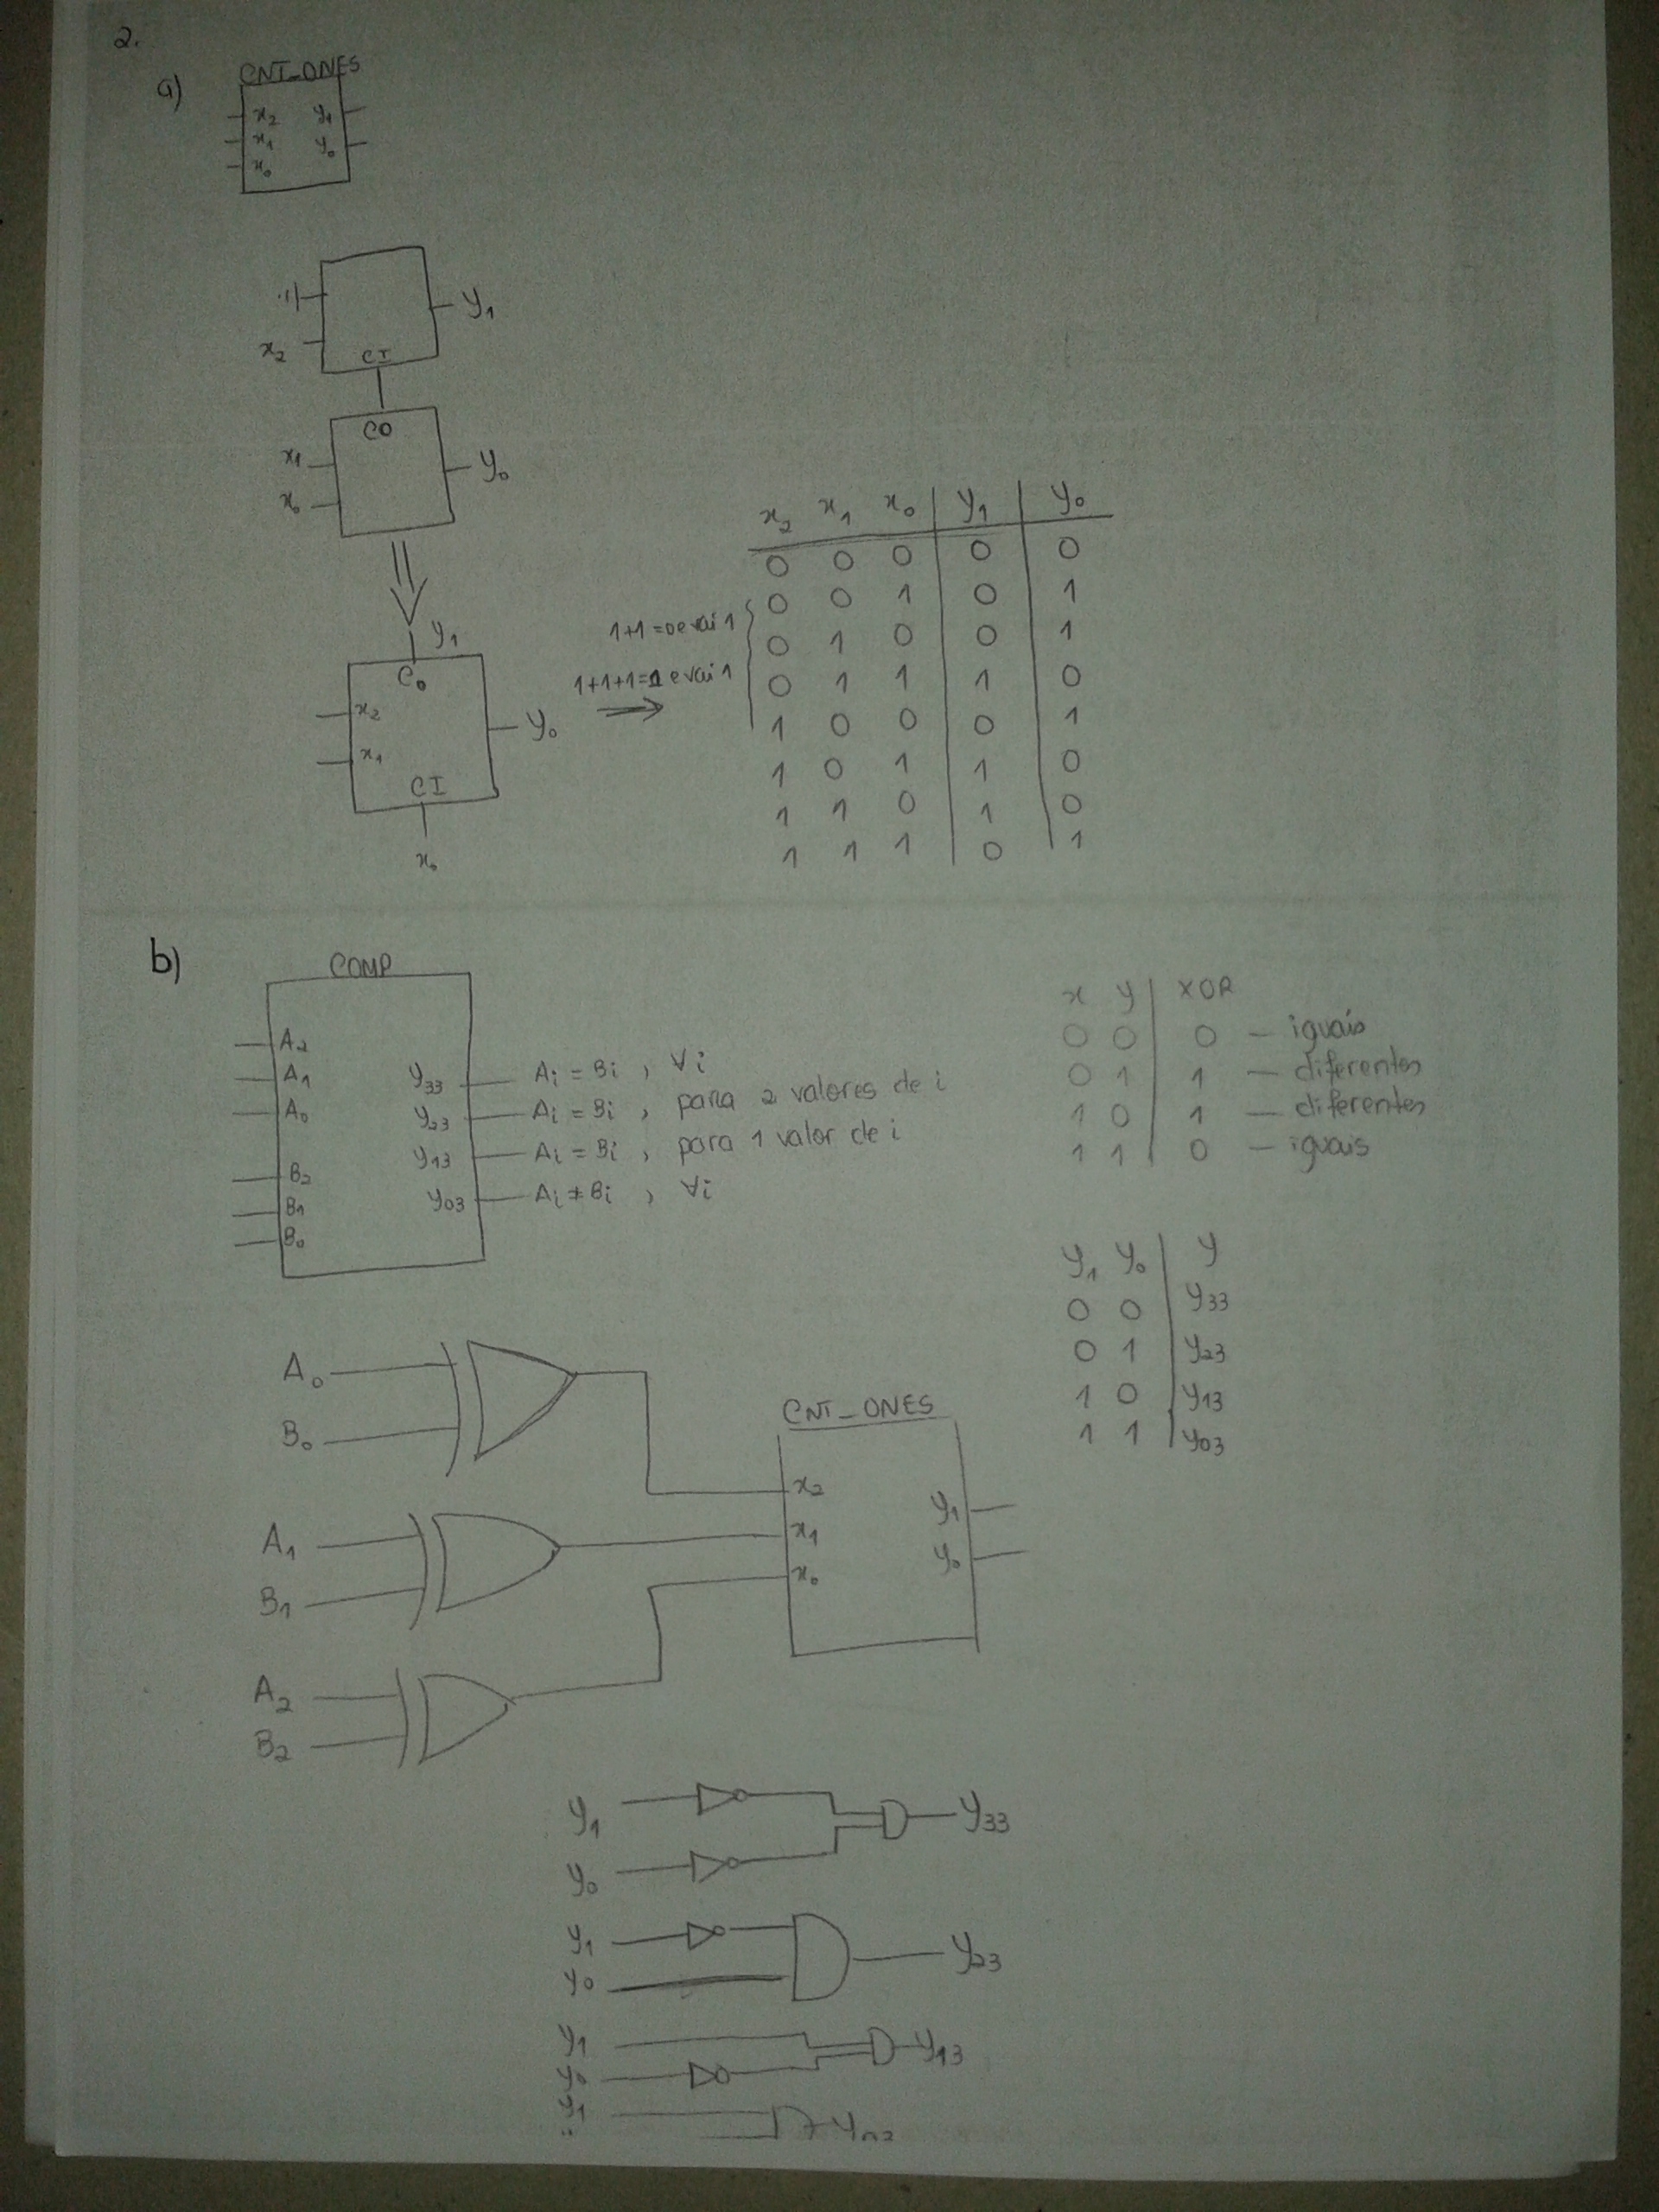 2.
a)
CNT_ONES
x₂ y₁
x₁ y₀
x₀
x₂ CI y₁
CO
x₁ y₀
x₀
y₁
C₀
x₂
x₁ y₀
CI
x₀
1+1=0 e vai 1
1+1+1=1 e vai 1
x₂ x₁ x₀ y₁ y₀
0 0 0 0 0
0 0 1 0 1
0 1 0 0 1
0 1 1 1 0
1 0 0 0 1
1 0 1 1 0
1 1 0 1 0
1 1 1 0 1
b)
COMP
A₂
A₁
A₀
B₂
B₁
B₀
y₃₃ Ai = Bi , ∀i
y₂₃ Ai = Bi , para 2 valores de i
y₁₃ Ai = Bi , para 1 valor de i
y₀₃ Ai ≠ Bi , ∀i
x y XOR
0 0 0 – iguais
0 1 1 – diferentes
1 0 1 – diferentes
1 1 0 – iguais
y₁ y₀ y
0 0 y₃₃
0 1 y₂₃
1 0 y₁₃
1 1 y₀₃
A₀
B₀
A₁
B₁
A₂
B₂
CNT_ONES
x₂ y₁
x₁ y₀
x₀
y₁ y₃₃
y₀
y₁ y₂₃
y₀
y₁ y₁₃
y₀
y₁